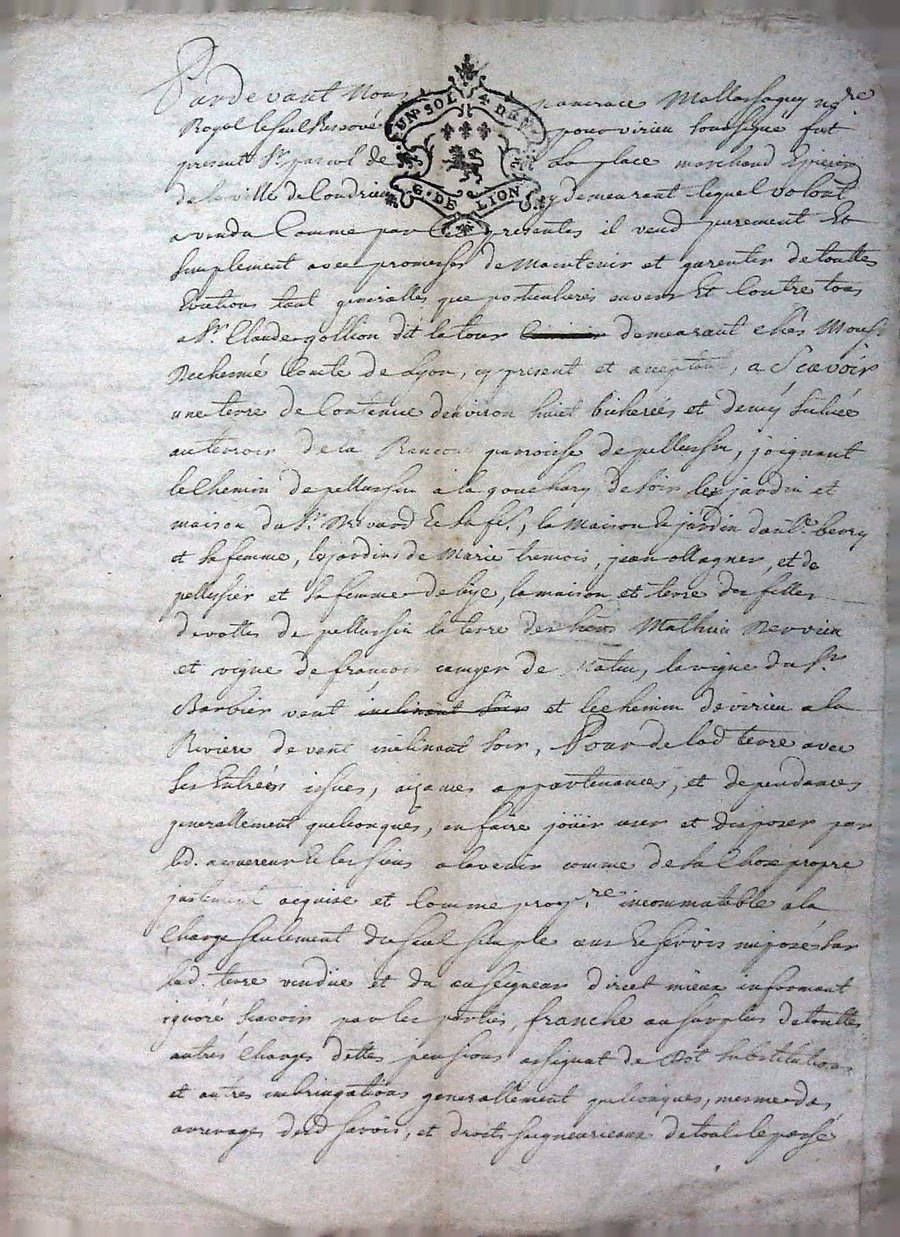 UN SOL 4 DEN.
G. DE LION
Pardevant Nous re
Royal le seul Reservé pour virieu soussigne fut
present Sr. de La place marchand
de la ville de Condrieu y demeurant lequel volont
a vendu Comme par Ces presentes il vend purement Et
simplement avec promesse de Maintenir et garentir de touttes
Evictions tant generalles que particulieres envers Et Contre tous
a Sr. Claude gollion dit latour demeurant chés Mons
Comte de Lyon, cy present et acceptant, a Scavoir
une terre de Contenue denviron huict bicherées et demy Située
au terroir de la parroisse de pellussin, joignant
le Chemin de pellussin a la de soir les jardin et
maison du Sr. , la Maison Et jardin
et sa femme, les jardins de Marie , jean ollagner, et de
pellissier et sa femme de , la maison et terre des filles
devottes de pellussin la terre des Mathieu Nervieu
et vigne de françois de , la vigne du Sr.
Barbier vent inclinant soir et le chemin de virieu a la
Riviere de vent inclinant soir, Pour de lad terre avec
ses Entrées issues, aizances appartenances, et dependances
generallement quelconques, en faire joüir user et disposer par
led. acquereur Et les siens a lavenir comme de sa Chose propre
justement acquise et Comme prop.re incommutable a la
Charge seulement du seul simple Et servis imposé sur
lad. terre vendue et du seigneur direct mieux informant
ignoré scavoir par les parties, franche au surplus de touttes
autres Charges dettes pensions substitutions
et autres generallement quelconques, mesme des
arrerages dud servis, et droits seigneuriaux de tout le passé